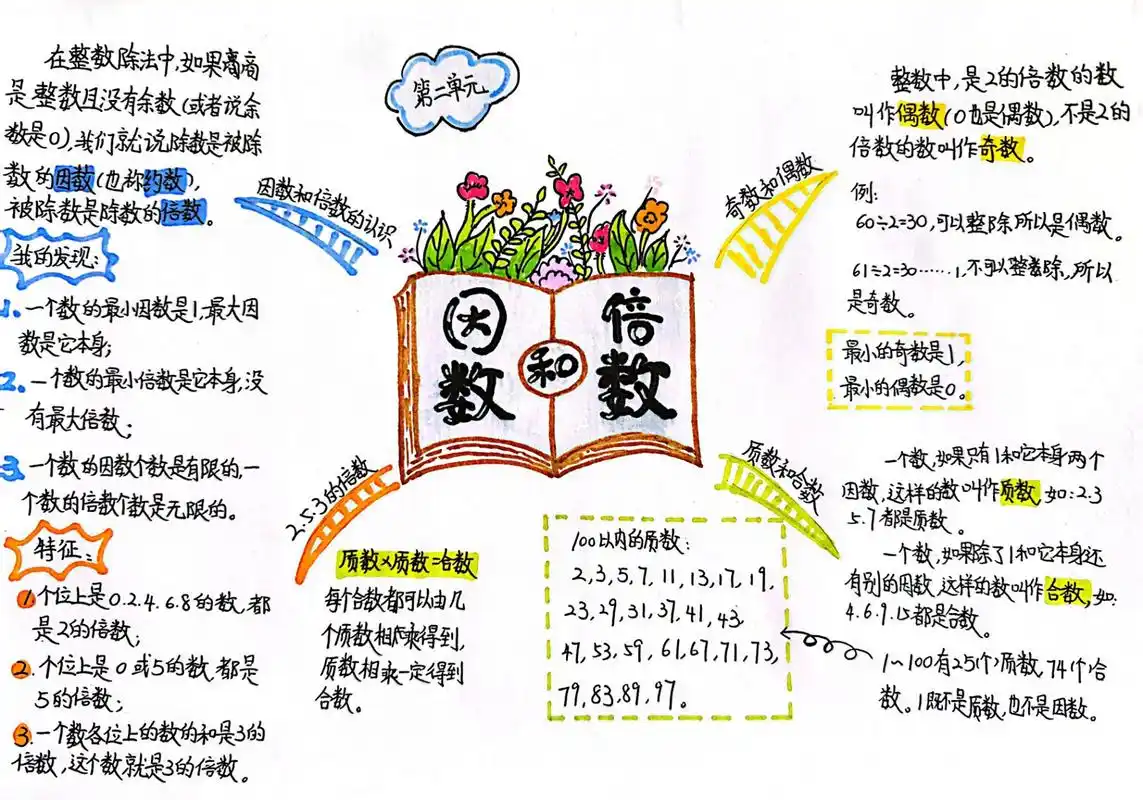 第二单元
因数
和
倍数
因数和倍数的认识
在整数除法中,如果离商
是整数且没有余数(或者说余
数是0),我们就说除数是被除
数的因数(也称约数),
被除数是除数的倍数。
我的发现:
1.一个数的最小因数是1,最大因
数是它本身;
2.一个数的最小倍数是它本身,没
有最大倍数;
3.一个数的因数个数是有限的,一
个数的倍数个数是无限的。
2.5.3的倍数
特征:
1.个位上是0.2.4.6.8的数,都
是2的倍数;
2.个位上是0或5的数,都是
5的倍数;
3.一个数各位上的数的和是3的
倍数,这个数就是3的倍数。
奇数和偶数
整数中,是2的倍数的数
叫作偶数(0也是偶数),不是2的
倍数的数叫作奇数。
例:
60÷2=30,可以整除所以是偶数。
61÷2=30……1,不可以整除,所以
是奇数。
最小的奇数是1,
最小的偶数是0。
质数和合数
一个数,如果只有1和它本身两个
因数,这样的数叫作质数,如:2.3
5.7都是质数。
一个数,如果除了1和它本身还
有别的因数,这样的数叫作合数,如:
4.6.9.15都是合数。
1~100有25个质数,74个合
数。1既不是质数,也不是因数。
100以内的质数:
2,3,5,7,11,13,17,19,
23,29,31,37,41,43,
47,53,59,61,67,71,73,
79,83,89,97。
质数×质数=合数
每个合数都可以由几
个质数相乘得到,
质数相乘一定得到
合数。